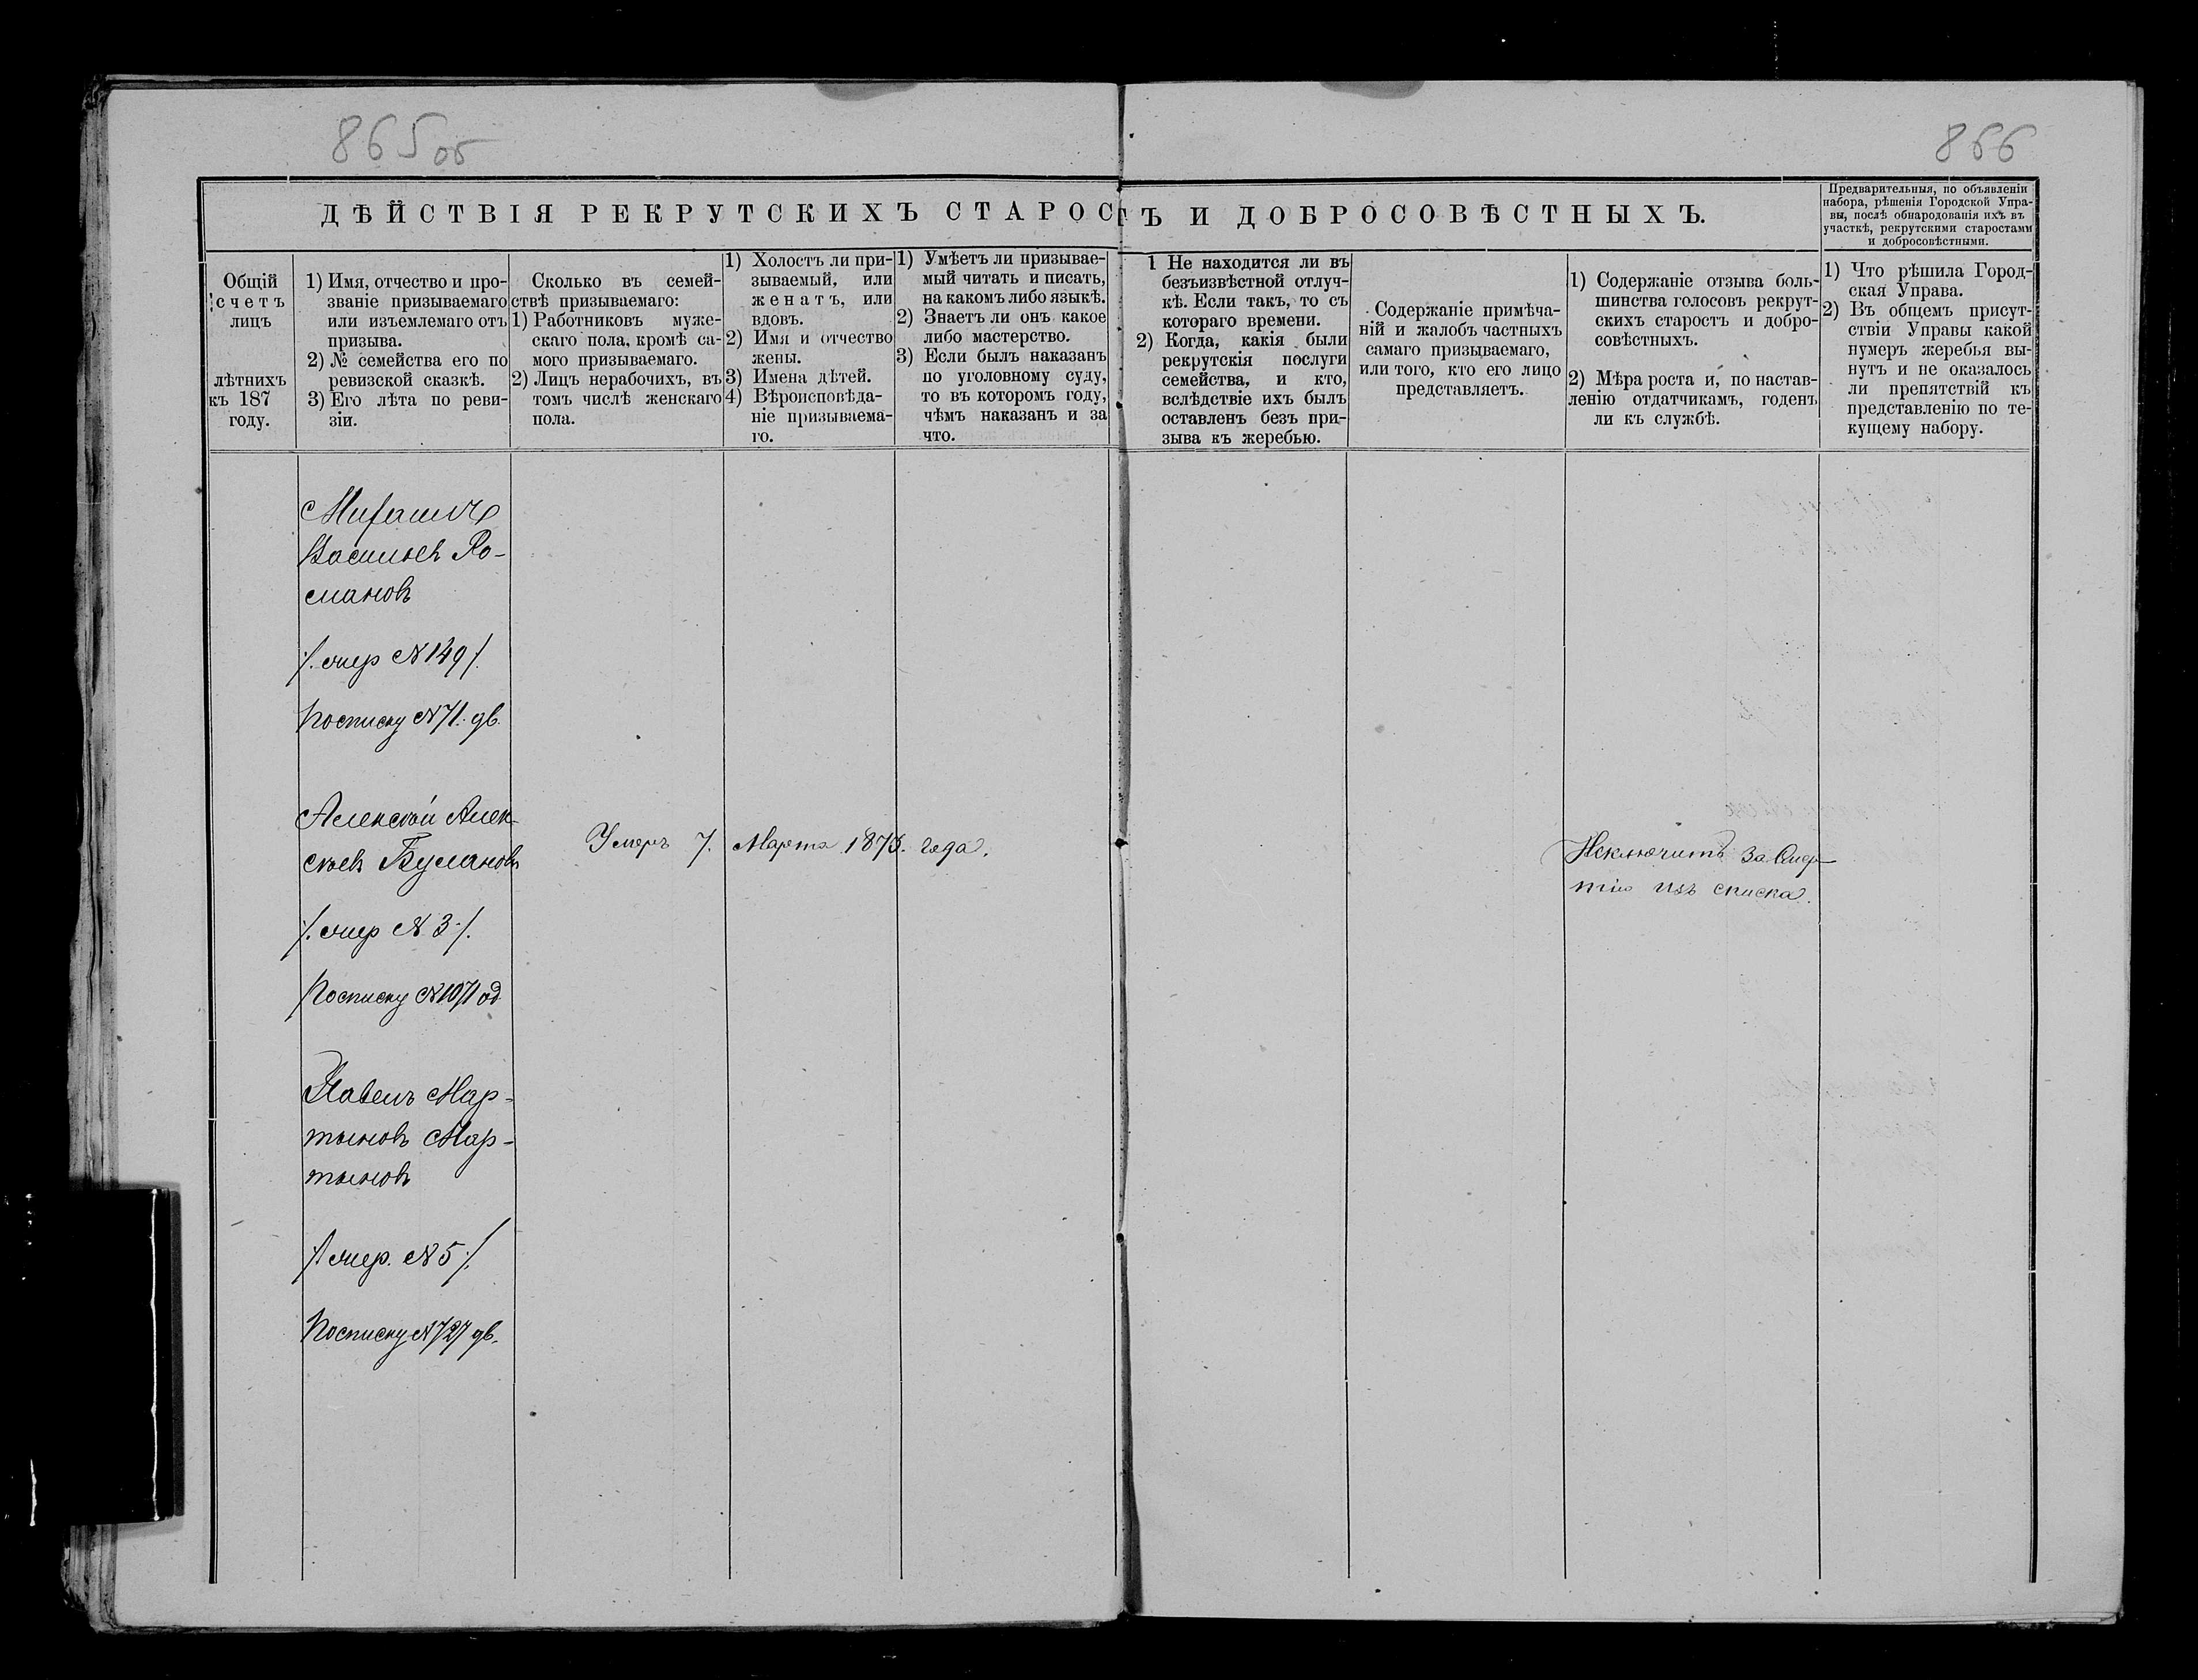 865об
866
ДѢЙСТВІЯ РЕКРУТСКИХЪ СТАРОСТЪ И ДОБРОСОВѢСТНЫХЪ.
Предварительныя, по объявленіи
набора, рѣшенія Городской Упра-
вы, послѣ обнародованія ихъ въ
участкѣ, рекрутскими старостами
и добросовѣстными.
Общій
счетъ
лицъ
лѣтнихъ
къ 187
году.
1) Имя, отчество и про-
званіе призываемаго
или изъемлемаго отъ
призыва.
2) № семейства его по
ревизской сказкѣ.
3) Его лѣта по реви-
зіи.
Сколько въ семей-
ствѣ призываемаго:
1) Работниковъ муже-
скаго пола, кромѣ са-
мого призываемаго.
2) Лицъ нерабочихъ, въ
томъ числѣ женскаго
пола.
1) Холостъ ли при-
зываемый, или
женатъ, или
вдовъ.
2) Имя и отчество
жены.
3) Имена дѣтей.
4) Вѣроисповѣда-
ніе призываема-
го.
1) Умѣетъ ли призывае-
мый читать и писать,
на какомъ либо языкѣ.
2) Знаетъ ли онъ какое
либо мастерство.
3) Если былъ наказанъ
по уголовному суду,
то въ которомъ году,
чѣмъ наказанъ и за
что.
1 Не находится ли въ
безъизвѣстной отлуч-
кѣ. Если такъ, то съ
котораго времени.
2) Когда, какія были
рекрутскія послуги
семейства, и кто,
вслѣдствіе ихъ былъ
оставленъ безъ при-
зыва къ жеребью.
Содержаніе примѣча-
ній и жалобъ частныхъ
самаго призываемаго,
или того, кто его лицо
представляетъ.
1) Содержаніе отзыва боль-
шинства голосовъ рекрут-
скихъ старостъ и добро-
совѣстныхъ.
2) Мѣра роста и, по настав-
ленію отдатчикамъ, годенъ
ли къ службѣ.
1) Что рѣшила Город-
ская Управа.
2) Въ общемъ присут-
ствіи Управы какой
нумеръ жеребья вы-
нутъ и не оказалось
ли препятствій къ
представленію по те-
кущему набору.
Васильевъ Ро-
мановъ
/. очер № 149 /.
По списку № 71. дв.
Алексѣй Алек-
сѣевъ Булановъ
/. очер № 3 /.
По списку № 1071 од
Умеръ 7. Марта 1873. года.
Исключить за смер-
тію изъ списка.
Павелъ Мар-
тыновъ Мар-
тыновъ
/. очер. № 5 /.
По списку № 727 дв.